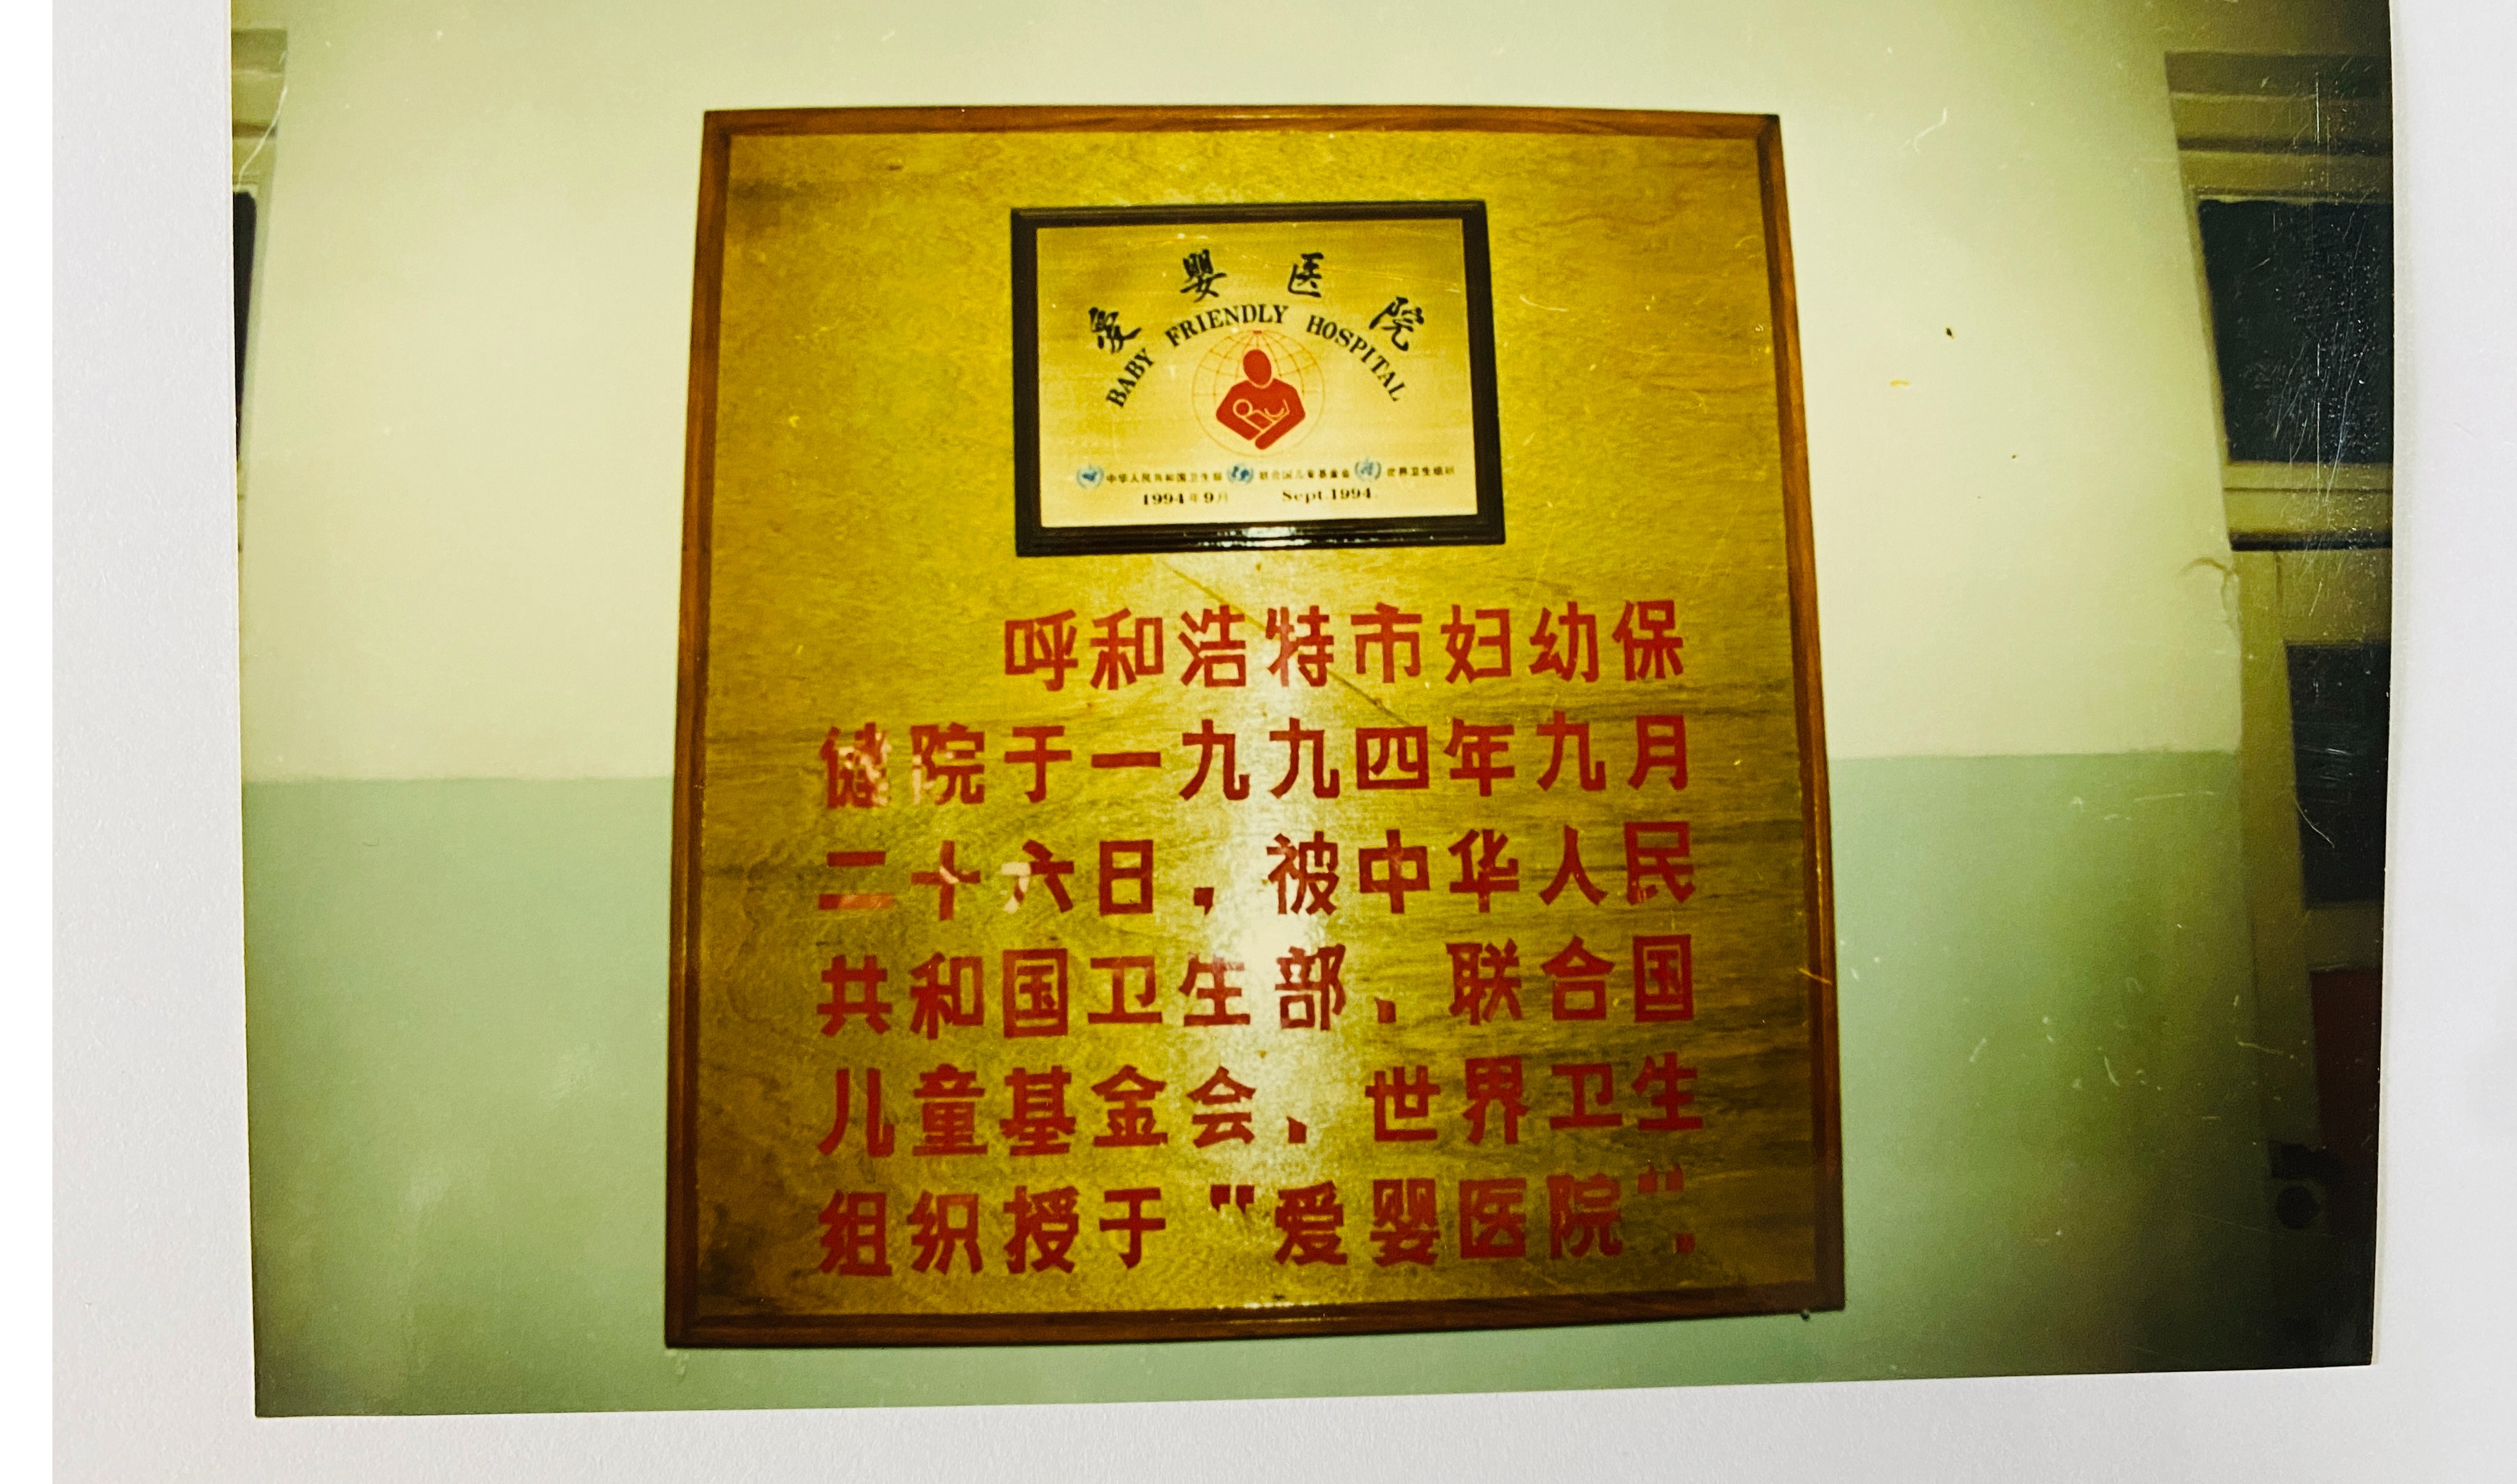 爱婴医院
BABY FRIENDLY HOSPITAL
中华人民共和国卫生部 联合国儿童基金会 世界卫生组织
1994年9月 Sept.1994.
呼和浩特市妇幼保
健院于一九九四年九月
二十六日，被中华人民
共和国卫生部、联合国
儿童基金会、世界卫生
组织授于"爱婴医院".